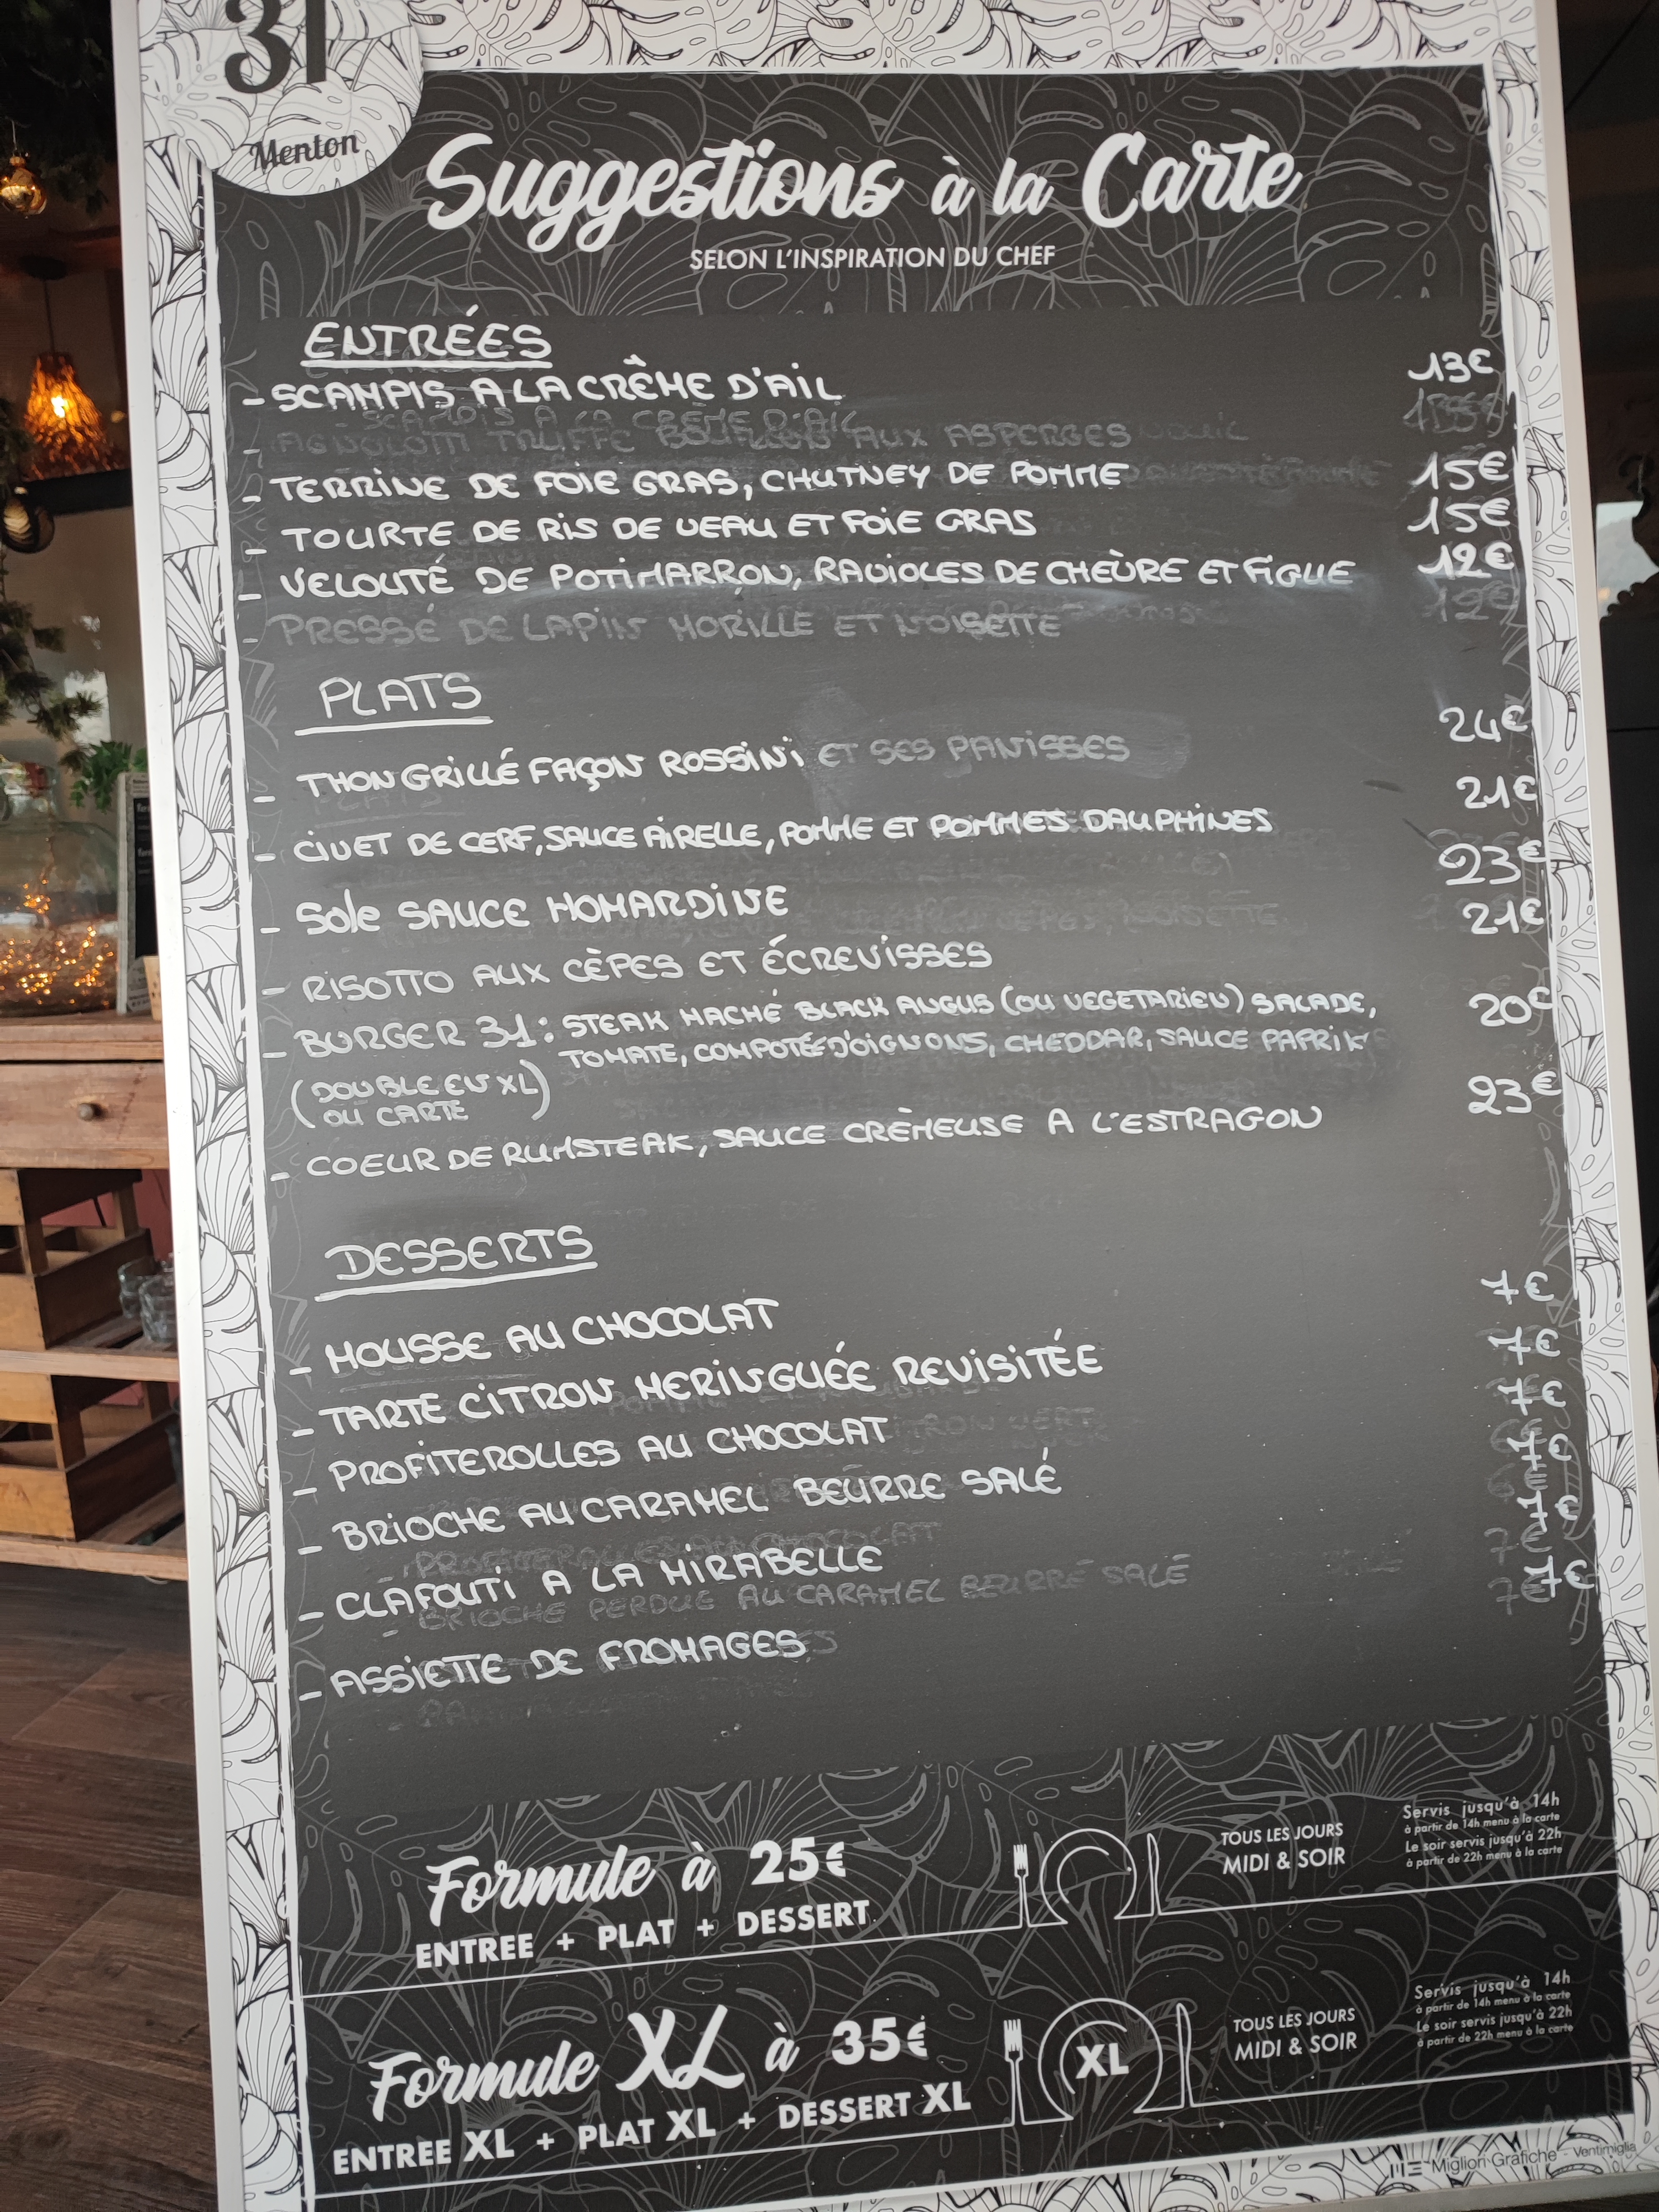 31
Menton
Suggestions à la Carte
SELON L'INSPIRATION DU CHEF
ENTRÉES
- SCAMPIS A LA CRÊME D'AIL 13€
- AGNOLOTTI TRUFFE AUX ASPERGES
- TERRINE DE FOIE GRAS, CHUTNEY DE POMME 15€
- TOURTE DE RIS DE VEAU ET FOIE GRAS 15€
- VELOUTÉ DE POTIMARRON, RAVIOLES DE CHÈVRE ET FIGUE 12€
- PRESSÉ DE LAPIN MORILLE ET NOISETTE 12€
PLATS
- THON GRILLÉ FAÇON ROSSINI ET SES PANISSES 24€
- CIVET DE CERF, SAUCE AIRELLE, POMME ET POMMES DAUPHINES 21€
- Sole SAUCE HOMARDINE 23€
- RISOTTO AUX CÈPES ET ÉCREVISSES 21€
- BURGER 31: STEAK HACHÉ BLACK ANGUS (OU VEGETARIEN) SALADE, 20€
TOMATE, COMPOTÉE D'OIGNONS, CHEDDAR, SAUCE PAPRIK
(DOUBLE EN XL)
OU CARTE
- COEUR DE RUMSTEAK, SAUCE CRÈMEUSE A L'ESTRAGON 23€
DESSERTS
- MOUSSE AU CHOCOLAT 7€
- TARTE CITRON MERINGUÉE REVISITÉE 7€
- PROFITEROLLES AU CHOCOLAT 7€
- BRIOCHE AU CARAMEL BEURRE SALÉ 7€
- CLAFOUTI A LA MIRABELLE 7€
- BRIOCHE PERDUE AU CARAMEL BEURRE SALÉ 7€
- ASSIETTE DE FROMAGES 7€
Formule à 25€
ENTREE + PLAT + DESSERT
TOUS LES JOURS
MIDI & SOIR
Servis jusqu'à 14h
à partir de 14h menu à la carte
Le soir servis jusqu'à 22h
à partir de 22h menu à la carte
Formule XL à 35€
ENTREE XL + PLAT XL + DESSERT XL
XL
TOUS LES JOURS
MIDI & SOIR
Servis jusqu'à 14h
à partir de 14h menu à la carte
Le soir servis jusqu'à 22h
à partir de 22h menu à la carte
Migliori Grafiche - Ventimiglia